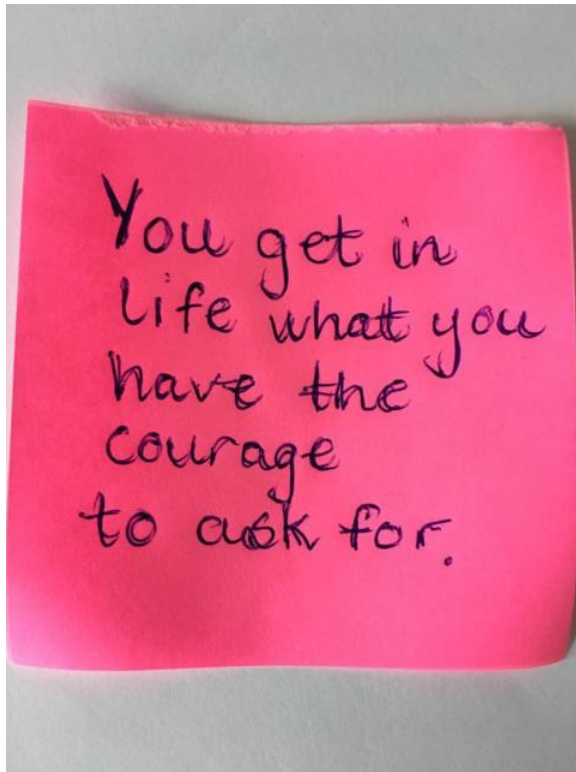 You get in
life what you
have the
courage
to ask for.